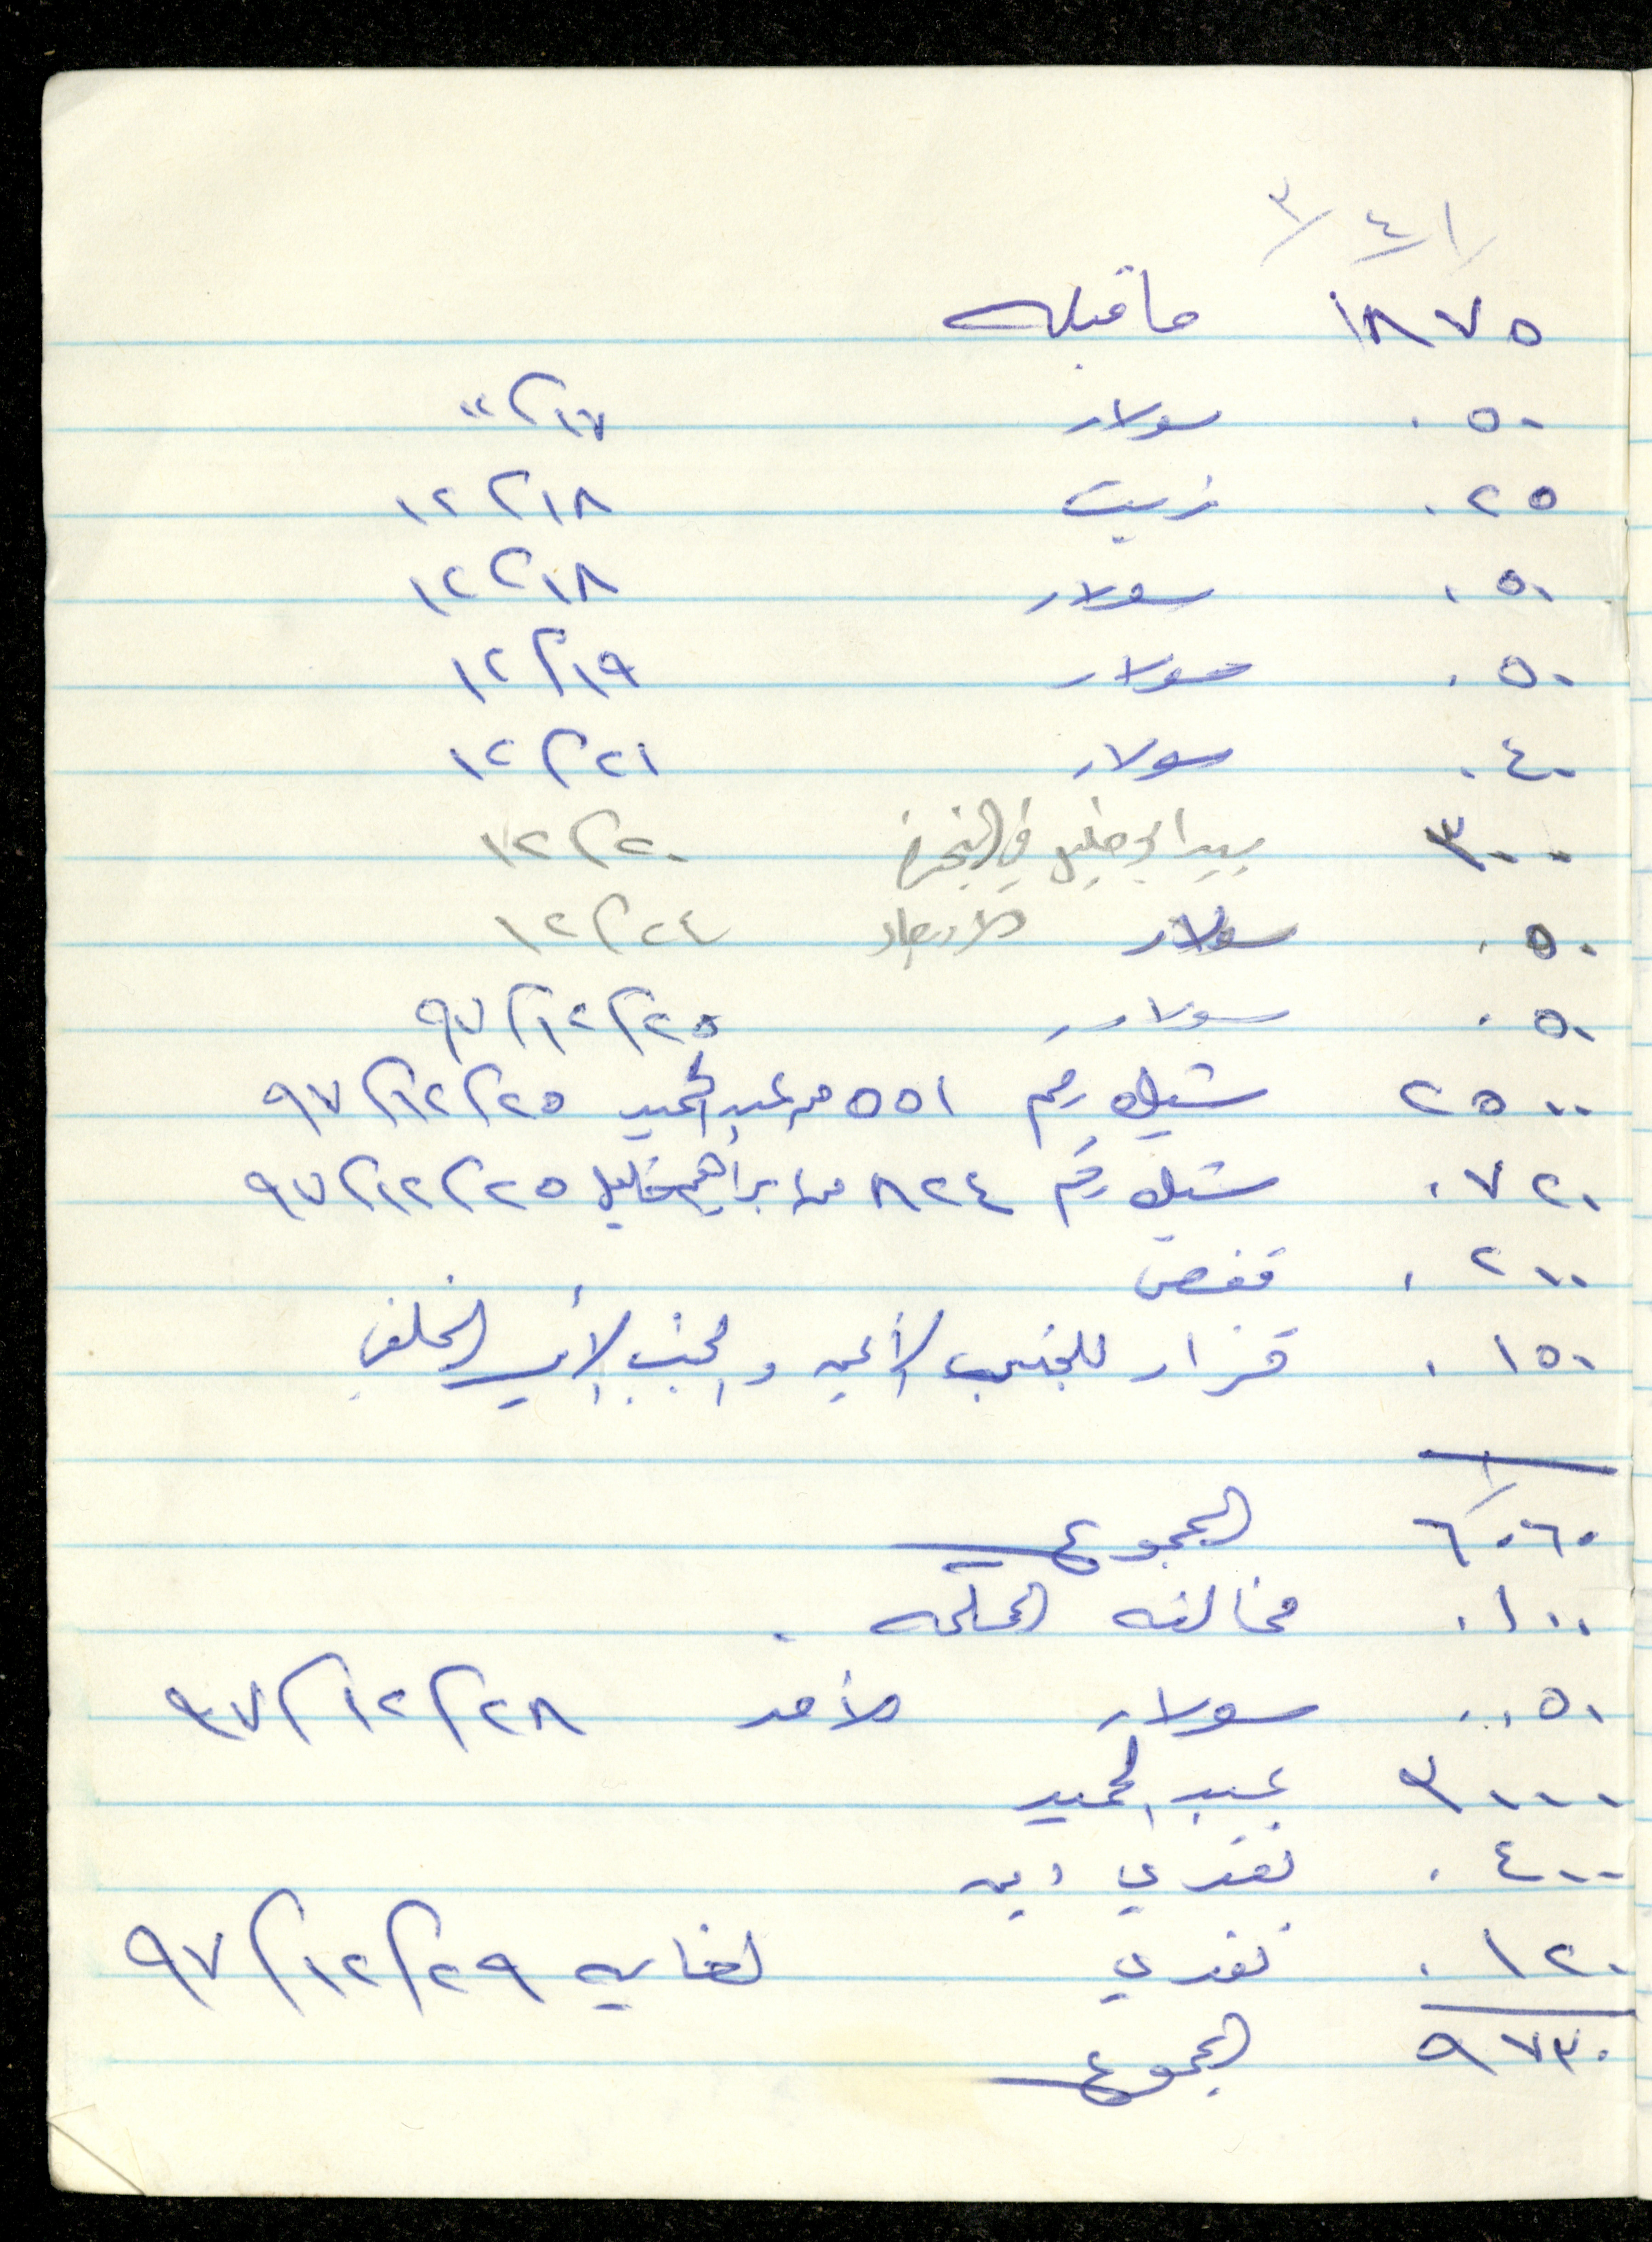 ١/ ٤/ ٣/
١٨٧٥ ما قبله
٠٥٠ سولار ١٧/ ״
٠٢٥ زيت ١٨/١٢
٠٥٠ سولار ١٨/١٢
٠٥٠ سولار ١٩/١٢
٠٤٠ سولار ٢١/١٢
٣٠٠ بيد ابو خليل في ٢٠/١٢
٠٥٠ سولار الاربعاء ٢٤/١٢
٠٥٠ سولار ٢٥/١٢/٩٧
٢٥٠٠ شيك رقم ٥٥١ من عبد الحميد ٢٥/١٢/٩٧
٠٧٢٠ شيك رقم ٨٢٤ من ابراهيم خليل ٢٥/١٢/٩٧
٠٢٠٠ قفص
٠١٥٠ قزاز للجنب الأيمن والجنب الأيسر الخلفي
١/
٦٠٦٠ المجموع
٠١٠٠ مخالفه المحكمه .
٠٠٥٠ سولار الأحد ٢٨/١٢/٩٧
٣٠٠٠ عبد الحميد
٠٤٠٠ نقدي دين
٠١٢٠ نقدي لغايه ٢٩/١٢/٩٧
٩٧٣٠ المجموع